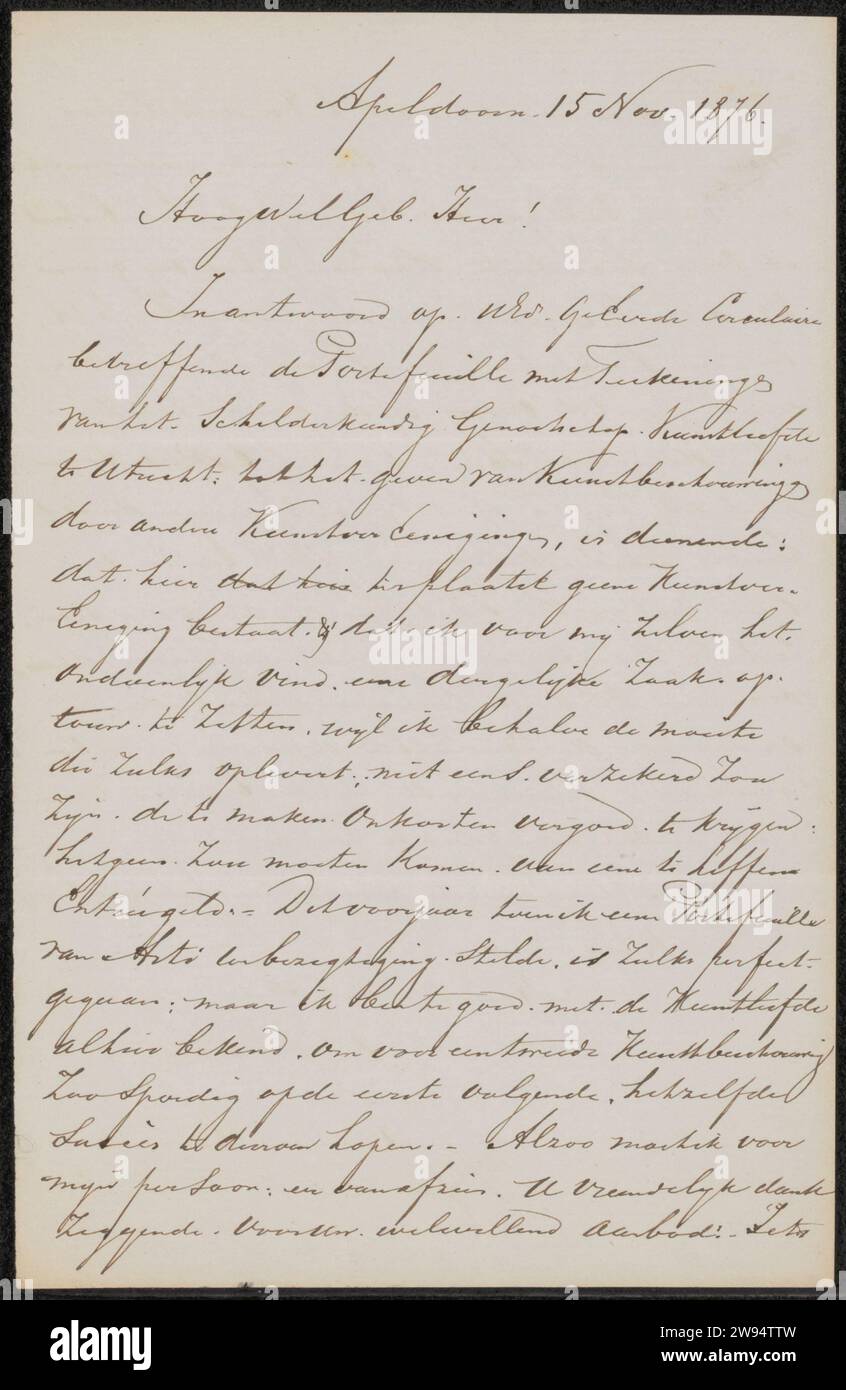 Apeldoorn. 15 Nov. 1876.
HoogWelGeb. Heer!
In antwoord op. UEd. GeEerde Circulaire
betreffende de Portefeuille met Teekeningn
van het. Schilderkundig Genootschap. Kunstliefde
te Utrecht: tot het. geven van Kunstbeschouwingn
door andere KunstverEenigingn, is dienende:
dat. hier dat hier ter plaatse geene Kunstver-
Eeniging bestaat. & dat ik voor mij zelven het.
ondoenlijk vind. eene dergelijke Zaak. op.
touw. te Zetten. wijl ik behalve de moeite
die Zulks oplevert; niet eens. verzekerd Zou
Zijn. de te maken Onkosten vergoed. te krijgen:
hetgeen. Zou moeten Komen. van eene te heffen
Entréegeld. - Dit voorjaar toen ik eene Portefeuille
van Arti ter bezigtiging. Stelde. is Zulks perfect-
gegaan; maar ik ben te goed. met. de Kunstliefde
alhier bekend. om voor een tweede Kunstbeschouwing
Zoo Spoedig op de eerste volgende. hetzelfde
Succès te durven hopen. - Alzoo moet ik voor
mijn persoon: er van afzien. U Vriendelijk dank
Zeggende. voor Uw. welwillend Aanbod: - Iets
alamy
Image ID: 2W94TTW
www.alamy.com